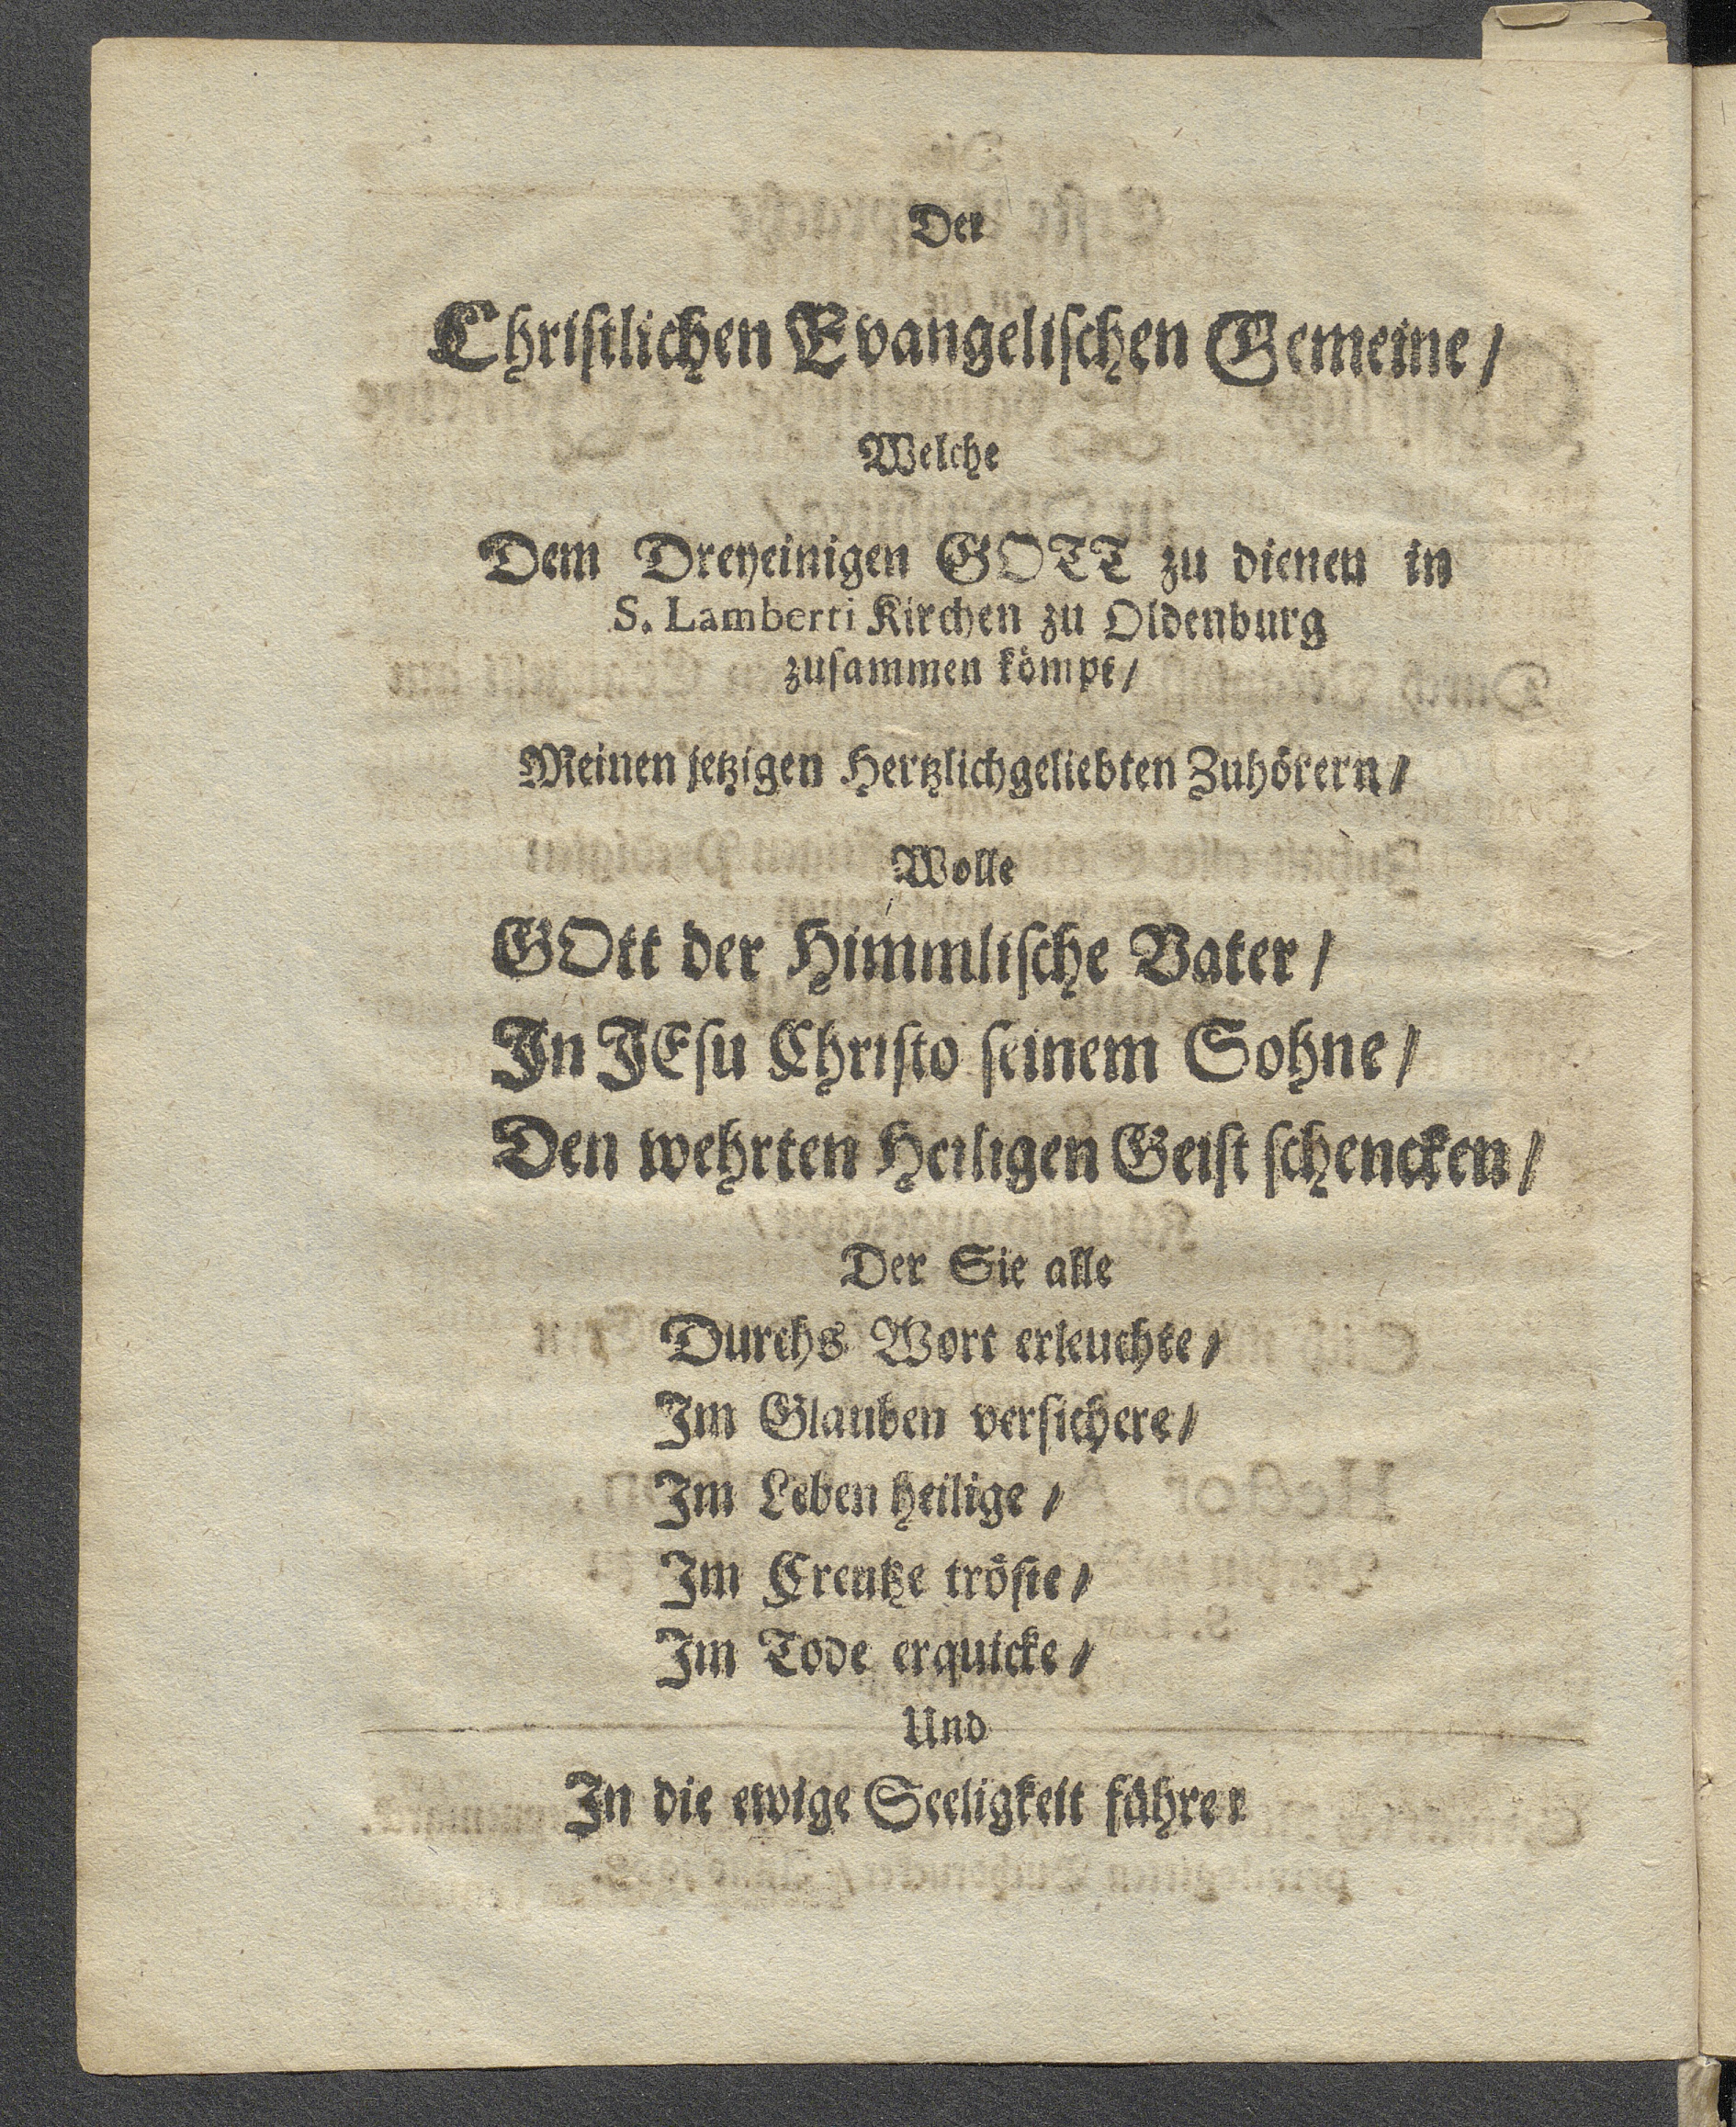 Der
Christlichen Evangelischen Gemeine/
Welche
Dem Dreyeinigen GOTT zu dienen in
S. Lamberti Kirchen zu Oldenburg
zusammen kömpt/
Meinen jetzigen Hertzlichgeliebten Zuhörern/
Wolle
GOtt der Himmlische Vater/
In JEsu Christo seinem Sohne/
Den wehrten Heiligen Geist schencken/
Der Sie alle
Durchs Wort erleuchte/
Im Glauben versichere/
Im Leben heilige/
Im Creutze tröste/
Im Tode erquicke/
Und
In die ewige Seeligkeit führe